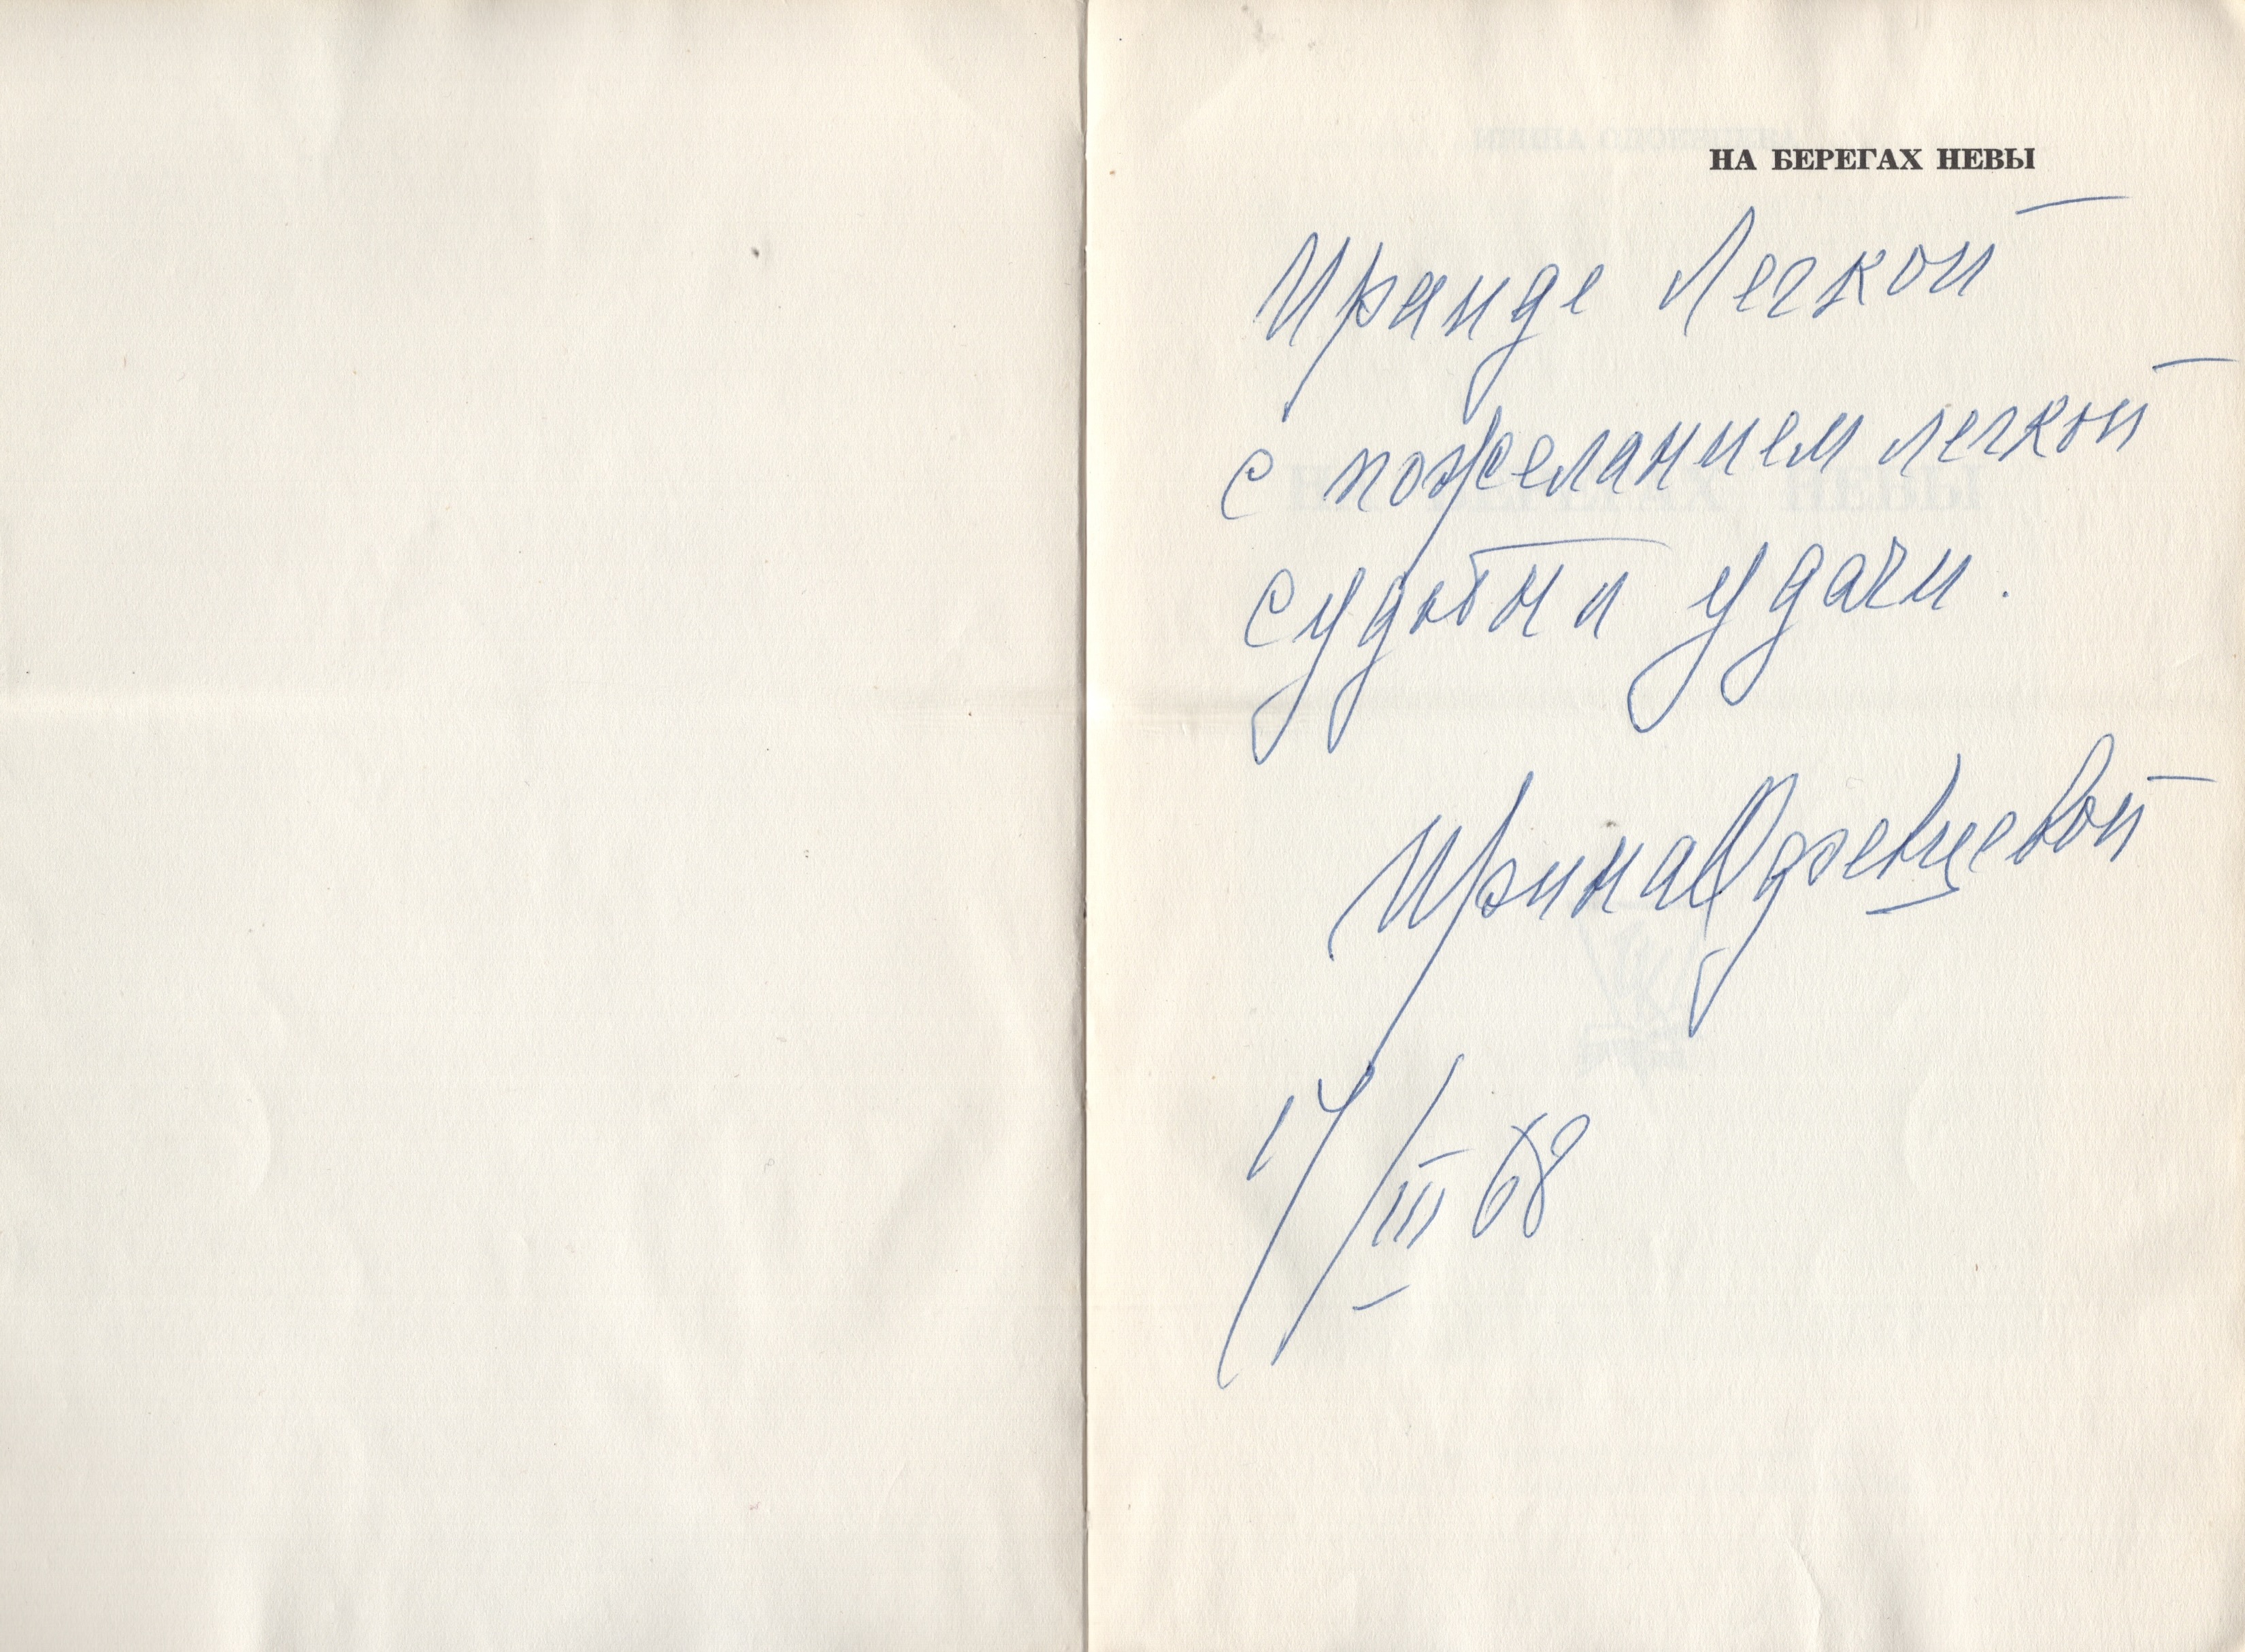 НА БЕРЕГАХ НЕВЫ
Иранде Легкой
с пожеланием легкой
судьбы и удачи.
Ирина Одоевцевой
17/III 68